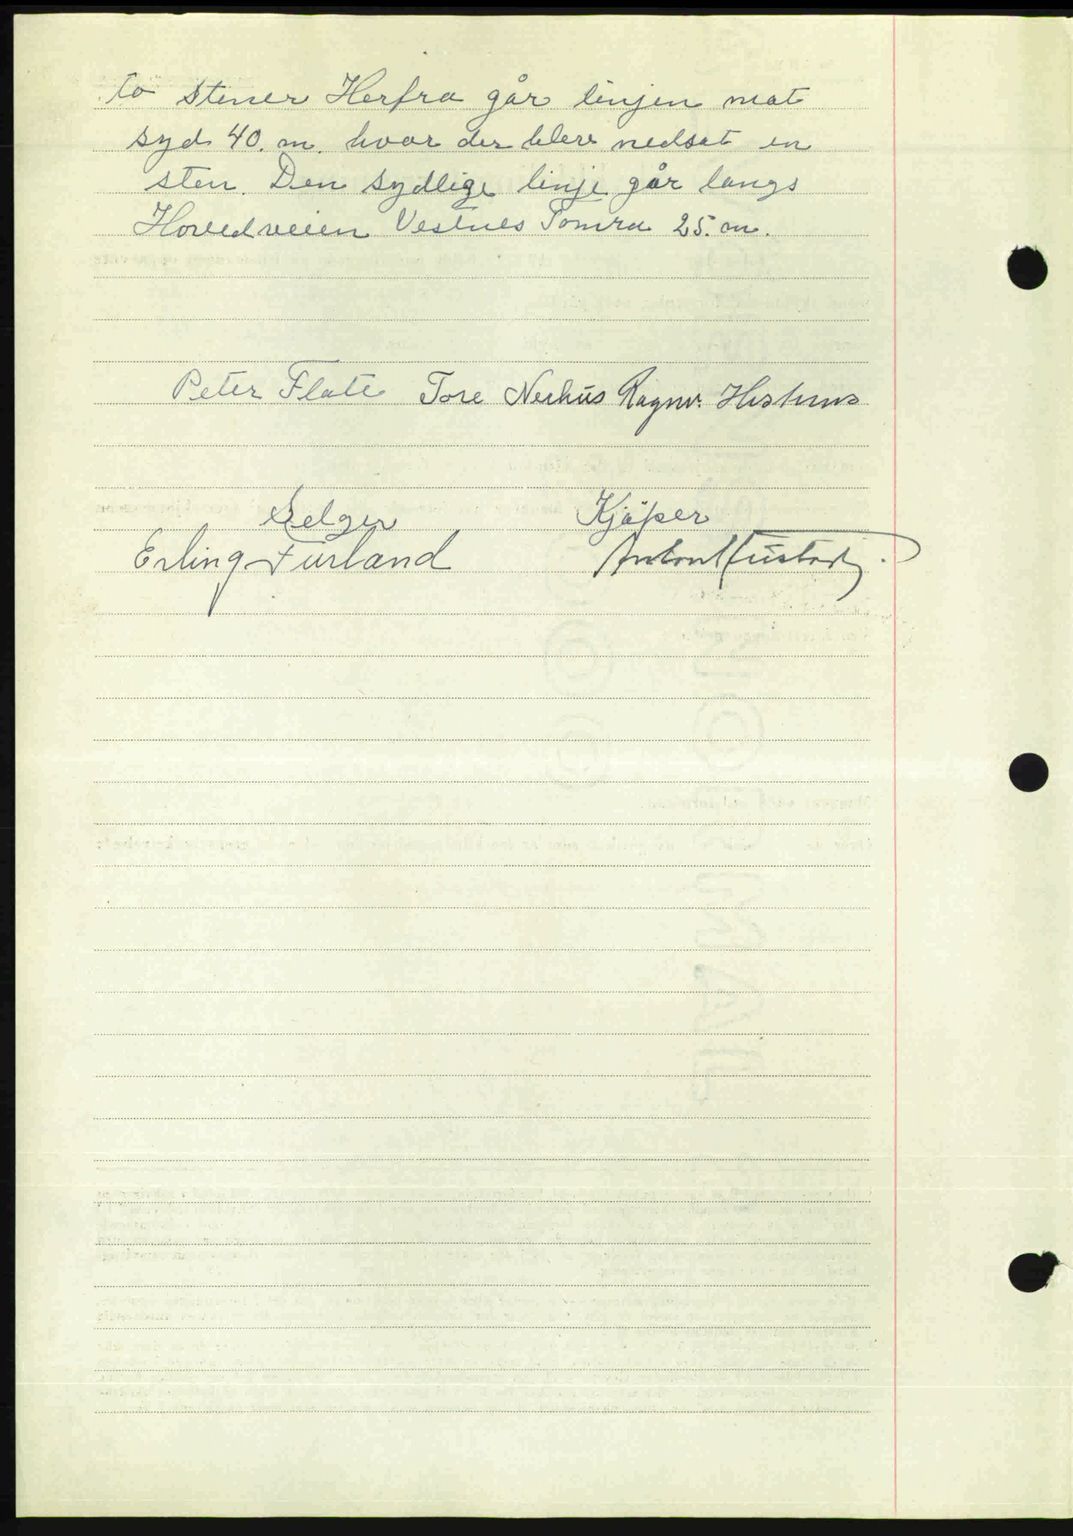 to stener Herfra går linjen mot
syd 40. m. hvor der blev nedsat en
sten. Den sydlige linje går langs
Hovedveien Vestnes Tomra 25. m.
Peter Flate Tore Nerhus Ragnv. Hestnes
Selger Kjøper
Erling Furland Anton